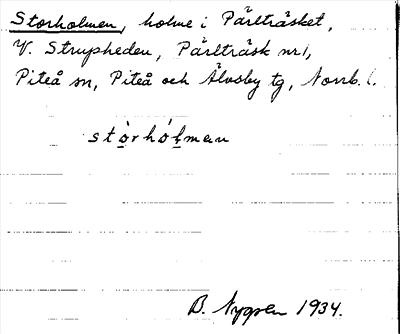 Storholmen, holme i Pärlträsket,
V. Strupheden, Pärlträsk nr 1,
Piteå sn, Piteå och Älvsby tg, Norrb. l.
stòrhólman
B. Nygren 1934.